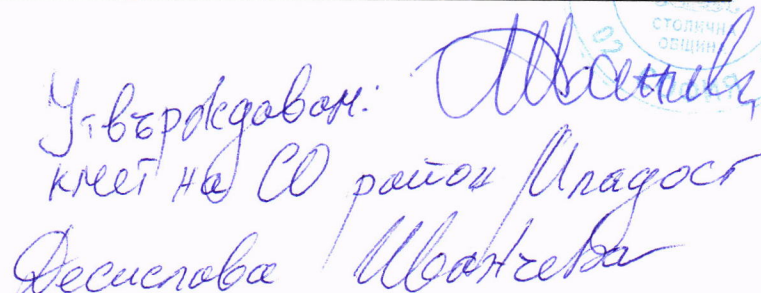 СТОЛИЧНА
ОБЩИНА
Утвърждавам:
кмет на СО район Младост
Десислава Иванчева